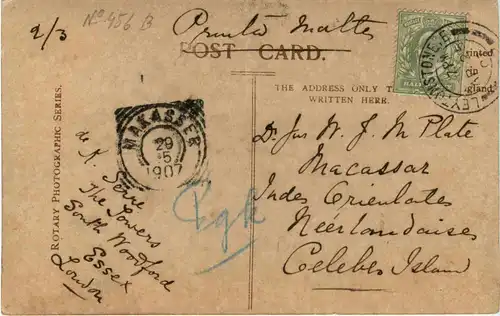 2/3
No 456 B
Printed Matter
POST CARD.
THE ADDRESS ONLY TO
WRITTEN HERE.
Printed
in
England
LEYTONSTONE.
HALF
ROTARY PHOTOGRAPHIC SERIES.
MAKASSER
29
5
1907
de A.
The Towers
South Woodford
Essex
London
W. J. M. Plate
Macassar
Indes Orientales
Néerlandaises
Celebes Island